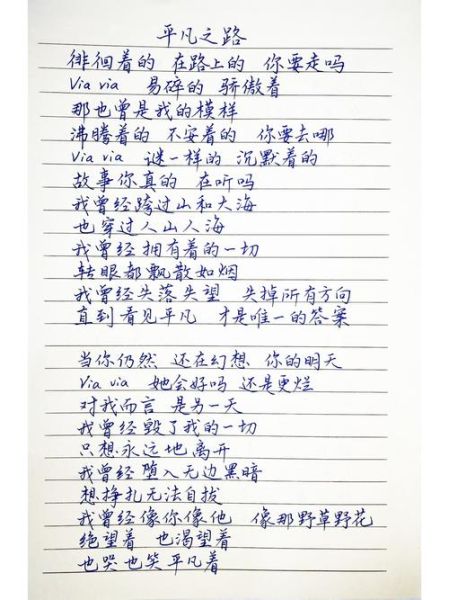 平凡之路
徘徊着的 在路上的 你要走吗
Via via 易碎的 骄傲着
那也曾是我的模样
沸腾着的 不安着的 你要去哪
Via via 谜一样的 沉默着的
故事你真的 在听吗
我曾经跨过山和大海
也穿过人山人海
我曾经拥有着的一切
转眼都飘散如烟
我曾经失落失望 失掉所有方向
直到看见平凡 才是唯一的答案
当你仍然 还在幻想 你的明天
Via via 她会好吗 还是更烂
对我而言 是另一天
我曾经毁了我的一切
只想永远地离开
我曾经堕入无边黑暗
想挣扎无法自拔
我曾经像你像他 像那野草野花
绝望着 也渴望着
也哭也笑平凡着